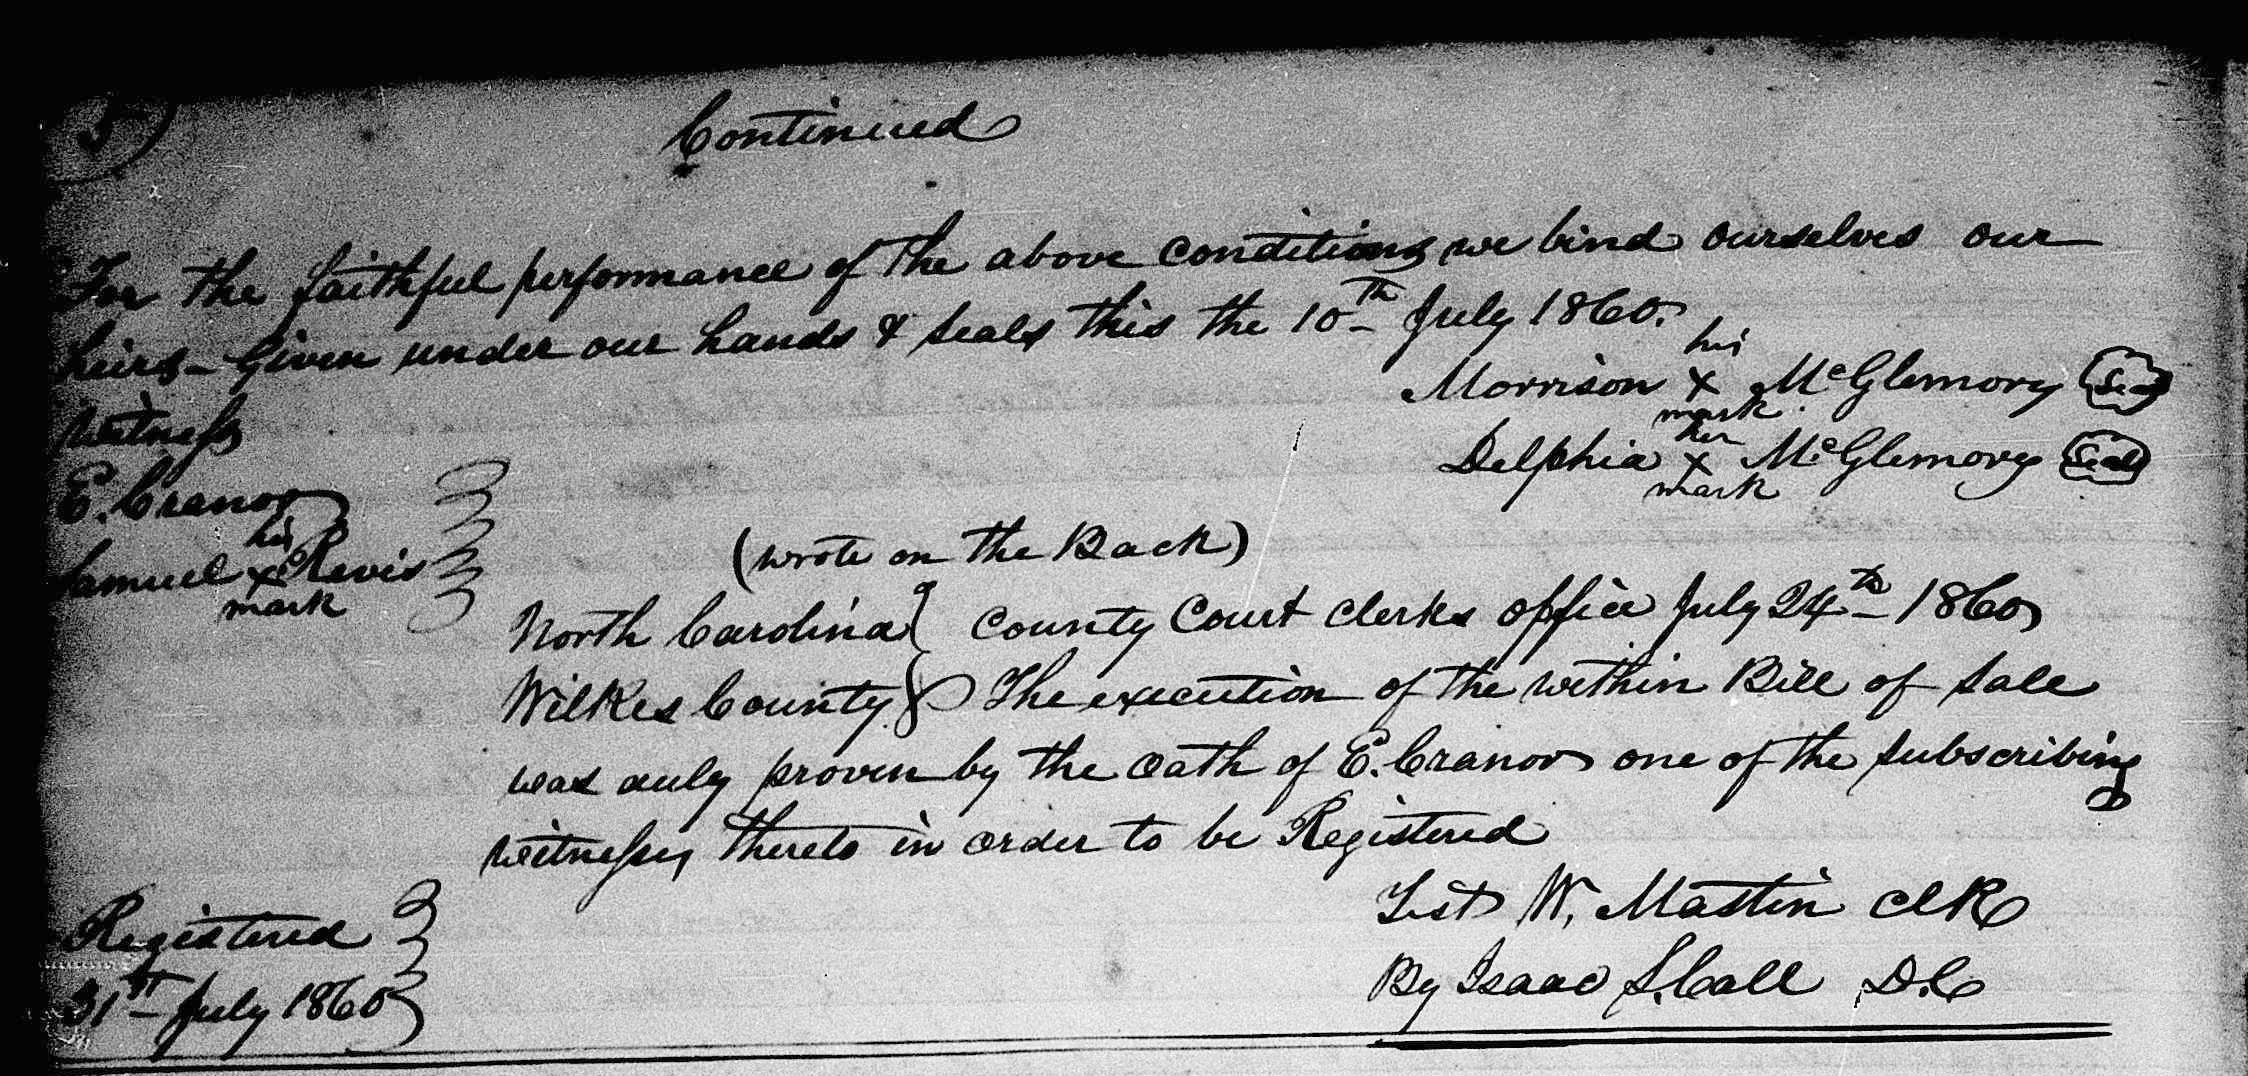 5
Continued
For the faithful performance of the above conditions we bind ourselves our
heirs - Given under our hands & seals this the 10th July 1860.
his
Morrison x McGlemory Seal
mark
Witness
her
Delphia x McGlemory Seal
mark
E. Cranor
his
Samuel x Revis
mark
(wrote on the Back)
North Carolina } County Court Clerks office July 24th 1860
Wilkes County } The execution of the within Bill of Sale
was duly proven by the oath of E. Cranor one of the subscribing
witnesses thereto in order to be Registered
Test W. Mastin ClK
Registered
By Isaac S. Call D.C
31st July 1860